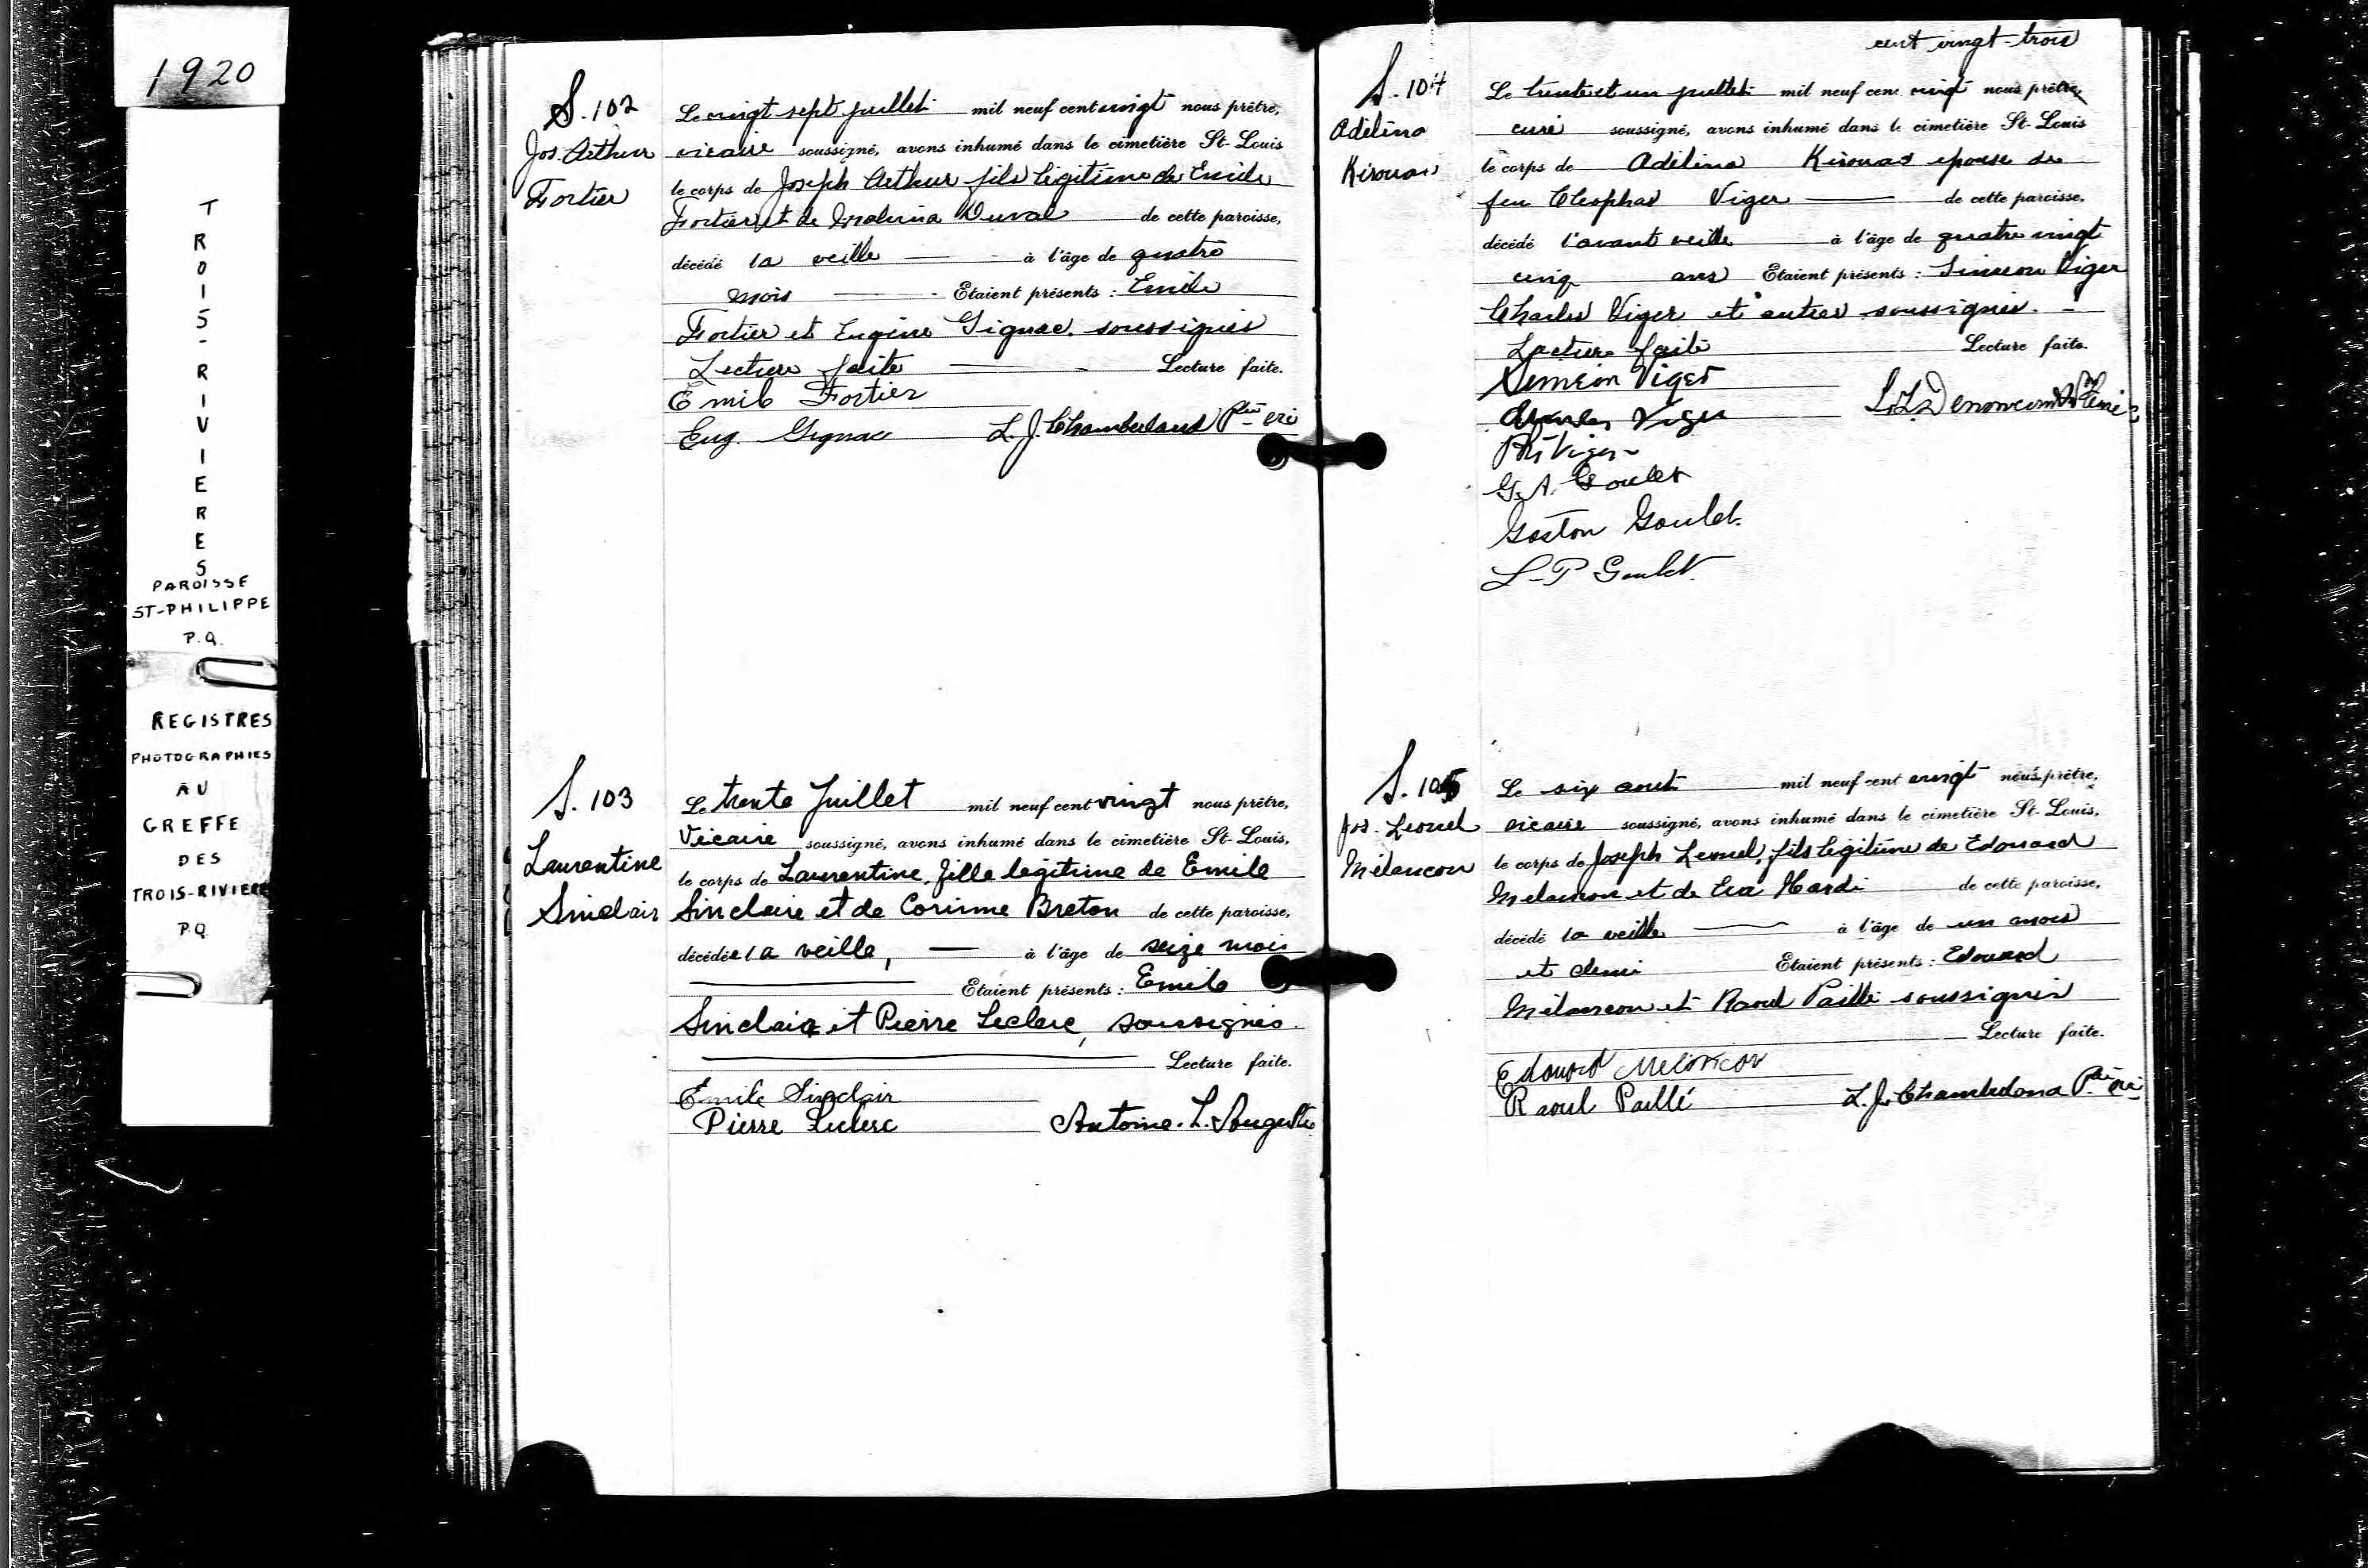 1920
TROIS-RIVIERES
PAROISSE
ST-PHILIPPE
P.Q.
REGISTRES
PHOTOGRAPHIES
AU
GREFFE
DES
TROIS-RIVIERE
P.Q
S. 102
Jos. Arthur
Fortier
Le vingt sept juillet mil neuf cent vingt nous prêtre,
vicaire soussigné, avons inhumé dans le cimetière St-Louis
le corps de Joseph Arthur fils légitime de Emile
Fortier et de Duval de cette paroisse,
décédé la veille à l'âge de quatre
mois Etaient présents : Emile
Fortier et Eugène Gignac. soussignés
Lecture faite Lecture faite.
Emile Fortier
Eug. Gignac L. J. Chamberland Ptre
S. 103
Laurentine
Sinclair
Le trente Juillet mil neuf cent vingt nous prêtre,
Vicaire soussigné, avons inhumé dans le cimetière St-Louis,
le corps de Laurentine, fille légitime de Emile
Sinclaire et de Corinne Breton de cette paroisse,
décédée la veille, à l'âge de seize mois
Etaient présents : Emile
Sinclair et Pierre Leclerc, soussignés.
Lecture faite.
Emile Sinclair
Pierre Leclerc Antoine. L.
cent vingt-trois
S. 104
Adélina
Kirouac
Le trente et un juillet mil neuf cent vingt nous prêtre
curé soussigné, avons inhumé dans le cimetière St-Louis
le corps de Adélina Kirouac épouse de
feu Cléophas Viger de cette paroisse,
décédé l'avant veille à l'âge de quatre vingt
cinq ans Etaient présents : Siméon Viger
Charles Viger et autres soussignés. -
Lecture faite Lecture faite.
Siméon Viger
Charles Viger
Viger
G. A. Goulet
Gaston Goulet.
L-P Goulet
S. 105
Jos. Leonel
Mélancon
Le six aout mil neuf cent vingt nous prêtre,
vicaire soussigné, avons inhumé dans le cimetière St-Louis,
le corps de Joseph Leonel, fils légitime de Edouard
Melancon et de Eva Hardi de cette paroisse,
décédé la veille à l'âge de un mois
et demi Etaient présents : Edouard
Mélancon et Raoul Paillé soussignés
Lecture faite.
Edouard Melancon
Raoul Paillé L. J. Chamberland Ptre